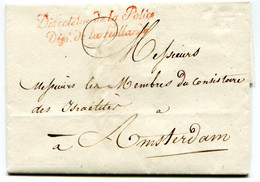 Directeur de la Police
Dépt. de la Hollande
Messieurs
Messieurs les Membres du Consistoire
des Israelites à
à Amsterdam